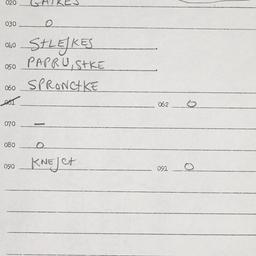 020 GAIKES
030 O
040 StLEJKES
050 PAPRUiStKE
060 SPRONCtKE
061 062 O
070 —
080 O
090 KNEJCt 091 O